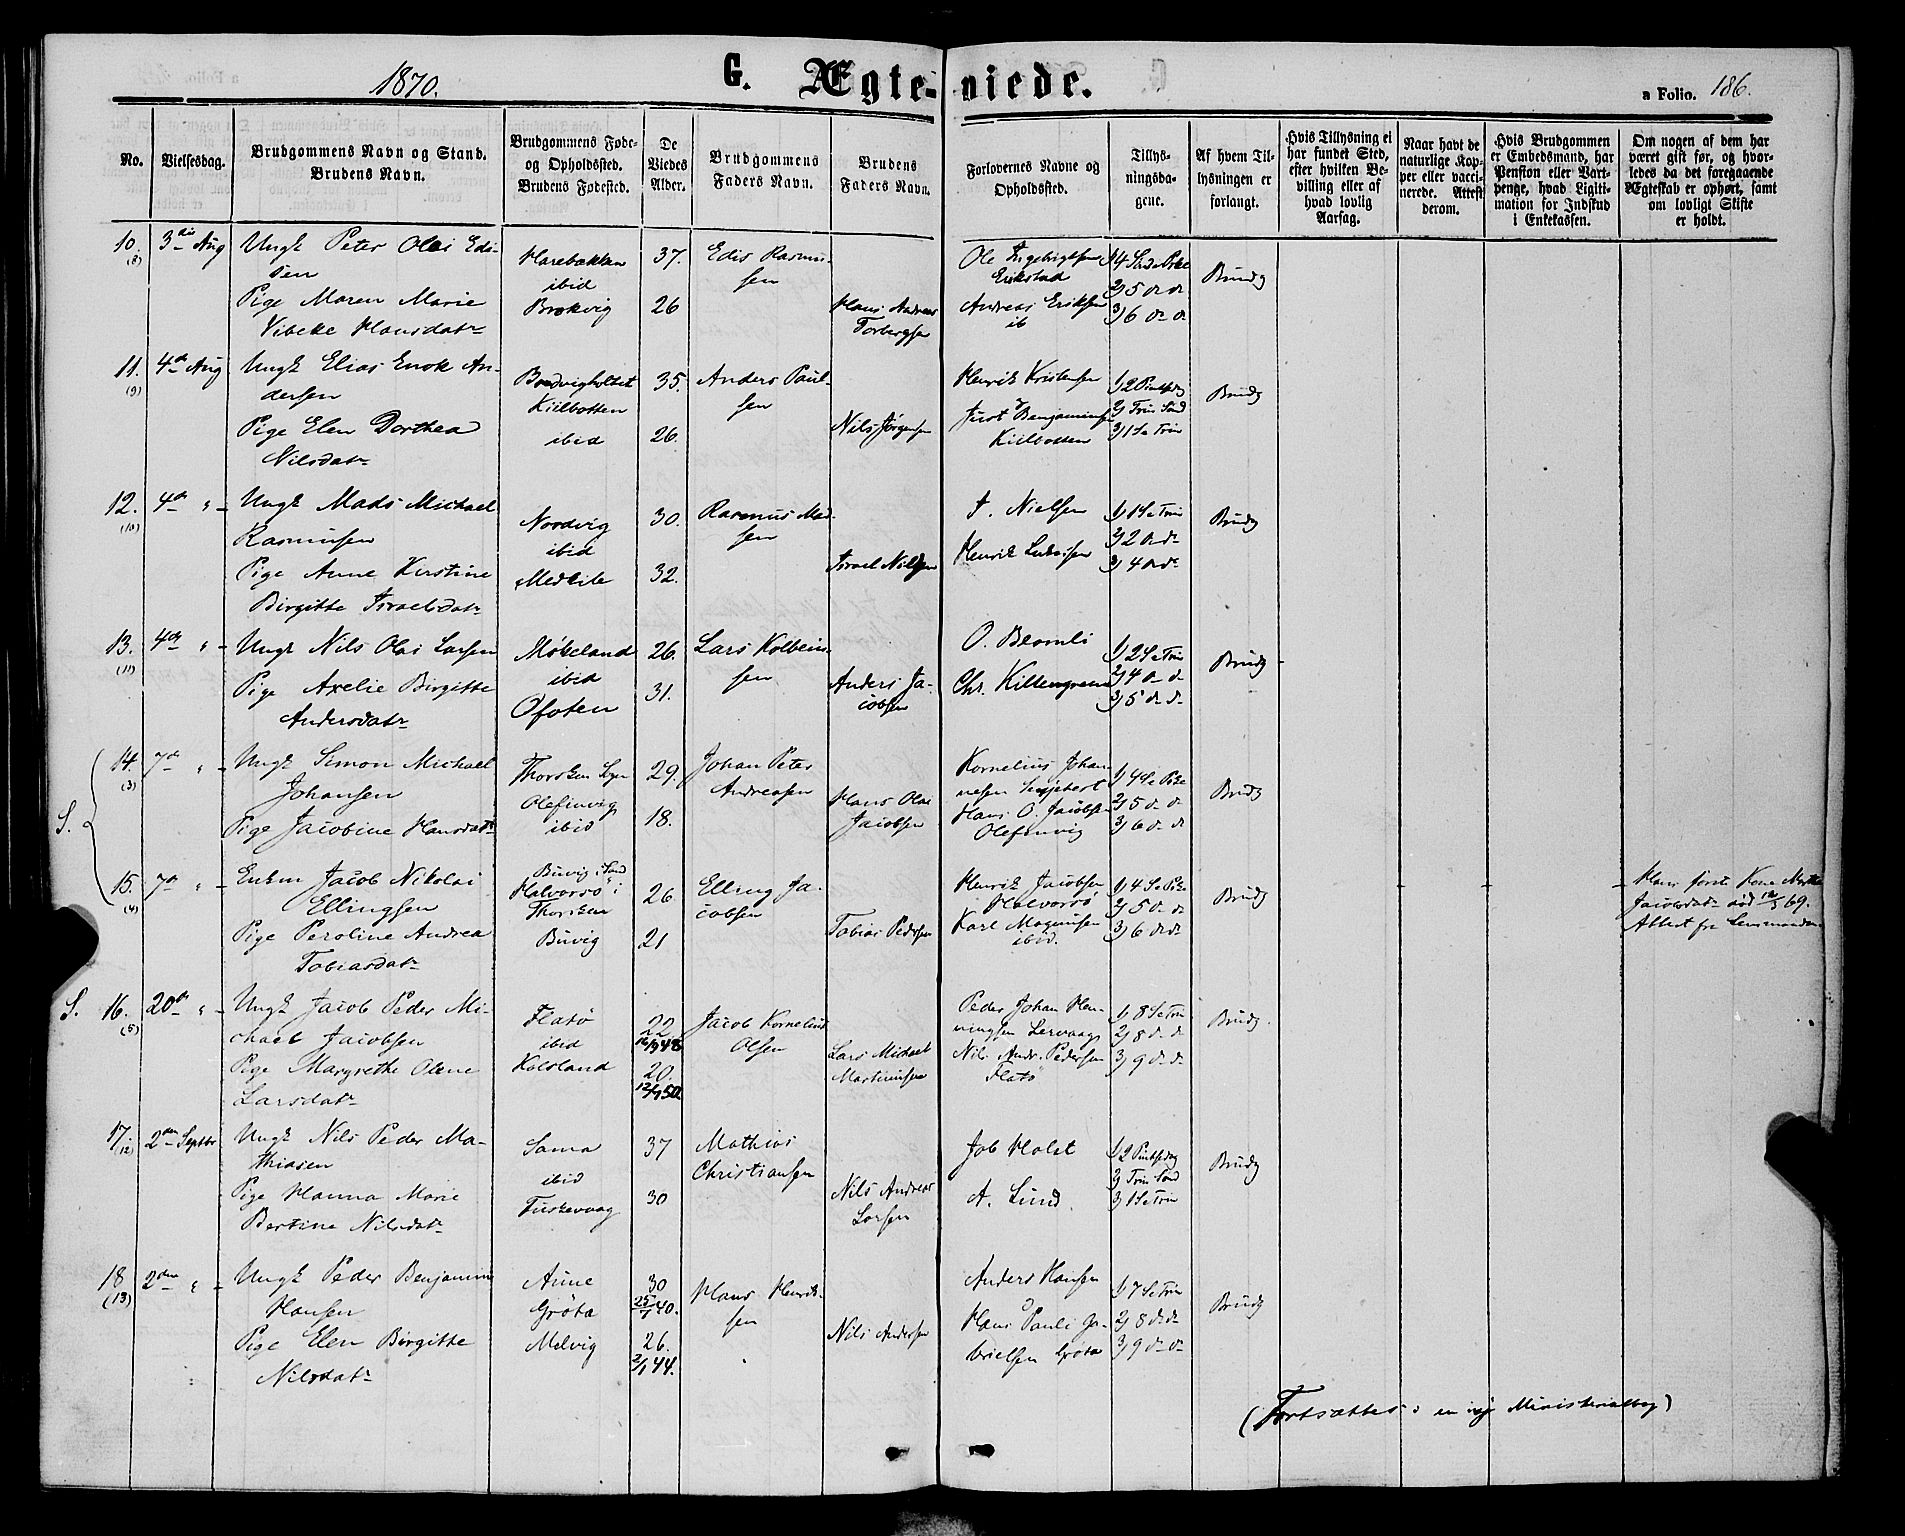 1870.
G. Ægteviede.
a Folio. 186.
No.
Vielsesdag.
Brudgommens Navn og Stand.
Brudens Navn.
Brudgommens Føde-
og Opholdssted.
Brudens Fødested.
De
Viedes
Alder.
Brudgommens
Faders Navn.
Brudens
Faders Navn.
Forlovernes Navne og
Opholdssted.
Tillys-
ningsda-
gene.
Af hvem Til-
lysningen er
forlangt.
Hvis Tillysning ei
har fundet Sted,
efter hvilken Be-
villing eller af
hvad lovlig
Aarsag.
Naar havt de
naturlige Kop-
per eller vacci-
nerede. Attest
derom.
Hvis Brudgommen
er Embedsmand, har
Pension eller Vart-
penge, hvad Legiti-
mation for Indskud
i Enkekassen.
Om nogen af dem har
været gift før, og hvor-
ledes da det foregaaende
Ægteskab er ophørt, samt
om lovligt Skifte
er holdt.
10. (8) 3die Aug
Ungk Peter Olai Edi-
sen
Pige Maren Marie
Vibeke Hansdatr
Harebakken
ibid
Brokvig
37.
26
Edis Rasmu-
sen
Hans Andreas
Torbergsen
Ole Ingebrigtsen
Erikstad
Andreas Eriksen
ib
1) 4 Sød e Pske
2) 5 d. d.
3) 6 d. d.
Brudg
11. (9) 4de Aug
Ungk Elias Enok An-
dersen
Pige Elen Dorthea
Nilsdatr
Kiilbotten
ibid
35.
26.
Anders Paul-
sen
Nils Jørgensen
Henrik Kristensen
Just Benjaminsen
Kiilbotten
1) 2 Pintsedag
2) Trin Sønd
3) 1 S e Trin
Brudg
12. (10) 4de " -
Ungk Mads Michael
Rasmusen
Pige Anne Kirstine
Birgitte Israelsdatr
Nordvig
ibid
Medkile
30.
32.
Rasmus Mad-
sen
Israel Nilsen
J. Nielsen
Henrik Ludvisen
1) 1 S e Trin
2) 2 d. d.
3) 4 d. d.
Brudg
13. (11) 4de " -
Ungk Nils Olai Larsen
Pige Axelie Birgitte
Andersdatr
Møkeland
ibid
Ofoten
26.
31.
Lars Kolbein-
sen
Anders Ja-
cobsen
O. Bromli
Chr. Kiltengreen
1) 2 S e Trin
2) 4 d. d.
3) 5 d. d.
Brudg
S.
14. (3) 7de " -
Ungk Simon Michael
Johansen
Pige Jacobine Hansdatr
Thorsken Sogn
Olefinvig
ibid
29.
18.
Johan Peter
Andreasen
Hans Olai
Jacobsen
Kornelius Johan-
nesen
Hans O. Jacobsen
Olefinvig
1) 4 S e Pske
2) 5 d. d.
3) 6 d. d.
Brudg
15. (4) 7de " -
Enkm Jacob Nikolai
Ellingsen
Pige Peroline Andrea
Tobiasdatr
Buvig i Sand
Halvorsø i
Thorsken
Buvig
26
21
Elling Ja-
cobsen
Tobias Pedersen
Henrik Jacobsen
Halvorsø
Karl Magnusen
ibid.
1) 4 S e Pske
2) 5 d. d.
3) 6 d. d.
Brudg
Hans første Kone Marthe
Jacobsdatr død 12/5 69.
Attest fra Lensmanden
S.
16. (5) 20de " -
Ungk Jacob Peder Mi-
chael Jacobsen
Pige Margrethe Oline
Larsdatr
Flatø
ibid
Kalsland
22
16/9 48
20.
12/7 50
Jacob Kornelius
Olsen
Lars Michael
Martinusen
Peder Johan Hen-
ningsen Lervaag
Nils Andr. Pedersen
Flatø
1) 8 S e Trin
2) 8 d. d.
3) 9 d. d.
Brudg.
17. (12) 2den Septbr
Ungk Nils Peder Ma-
thiasen
Pige Hanna Marie
Bertine Nilsdatr
Sama
ibid
Fuskevaag
37
30
Mathias
Christiansen
Nils Andreas
Larsen
Job Holst
A. Lund
1) 2 Pintsedag
2) Trin Sønd
3) 1 S e Trin
Brudg
18 (13) 2den " -
Ungk Peder Benjamin
Hansen
Pige Elen Birgitte
Nilsdatr
Aune
Grøta
Melvig
30
25/7 40.
26.
2/1 44.
Hans Henrik-
sen
Nils Andersen
Anders Hansen
Hans Pauli Ga-
brielsen Grøta
1) 7 S e Trin
2) 8 d. d.
3) 9 d. d.
Brudg
(Fortsættes i en ny Ministerialbog)